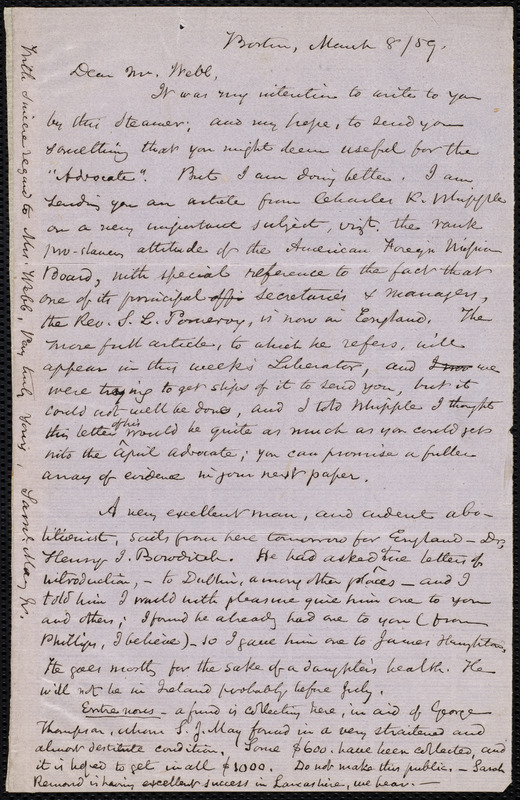 Boston, March 8/59.
Dear Mr. Webb,
It was my intention to write to you
by this Steamer; and my hope, to send you
something that you might deem useful for the
"Advocate". But I am doing better. I am
sending you an article from Charles K. Whipple
on a very important subject, vizt. the rank
pro-slavery attitude of the American Foreign Mission
Board, with special reference to the fact that
one of its principal offi secretaries & managers,
the Rev. S. L. Pomeroy, is now in England. The
more full article, to which he refers, will
appear in this week's Liberator, and I was we
were trying to get slips of it to send you, but it
could not well be done, and I told Whipple I thought
this letter of his would be quite as much as you could get
into the April Advocate; you can promise a fuller
array of evidence in your next paper.
A very excellent man, and ardent abo-
litionist, sails from here tomorrow for England - Dr.
Henry I. Bowditch. He had asked me letters of
introduction, - to Dublin, among other places - and I
told him I would with pleasure give him one to you
and others; I found he already had one to you (from
Phillips, I believe) - so I gave him one to James Haughton.
He goes mostly for the sake of a daughter's health. He
will not be in Ireland probably before July.
Entre nous - a fund is collecting here, in aid of George
Thompson, whom S. J. May found in a very straitened and
almost destitute condition. Some $600. have been collected, and
it is hoped to get in all $1000. Do not make this public. - Sarah
Remond is having excellent success in Lancashire, we hear. -
With sincere regard to Mrs. Webb, Very truly yours, Saml. May Jr.